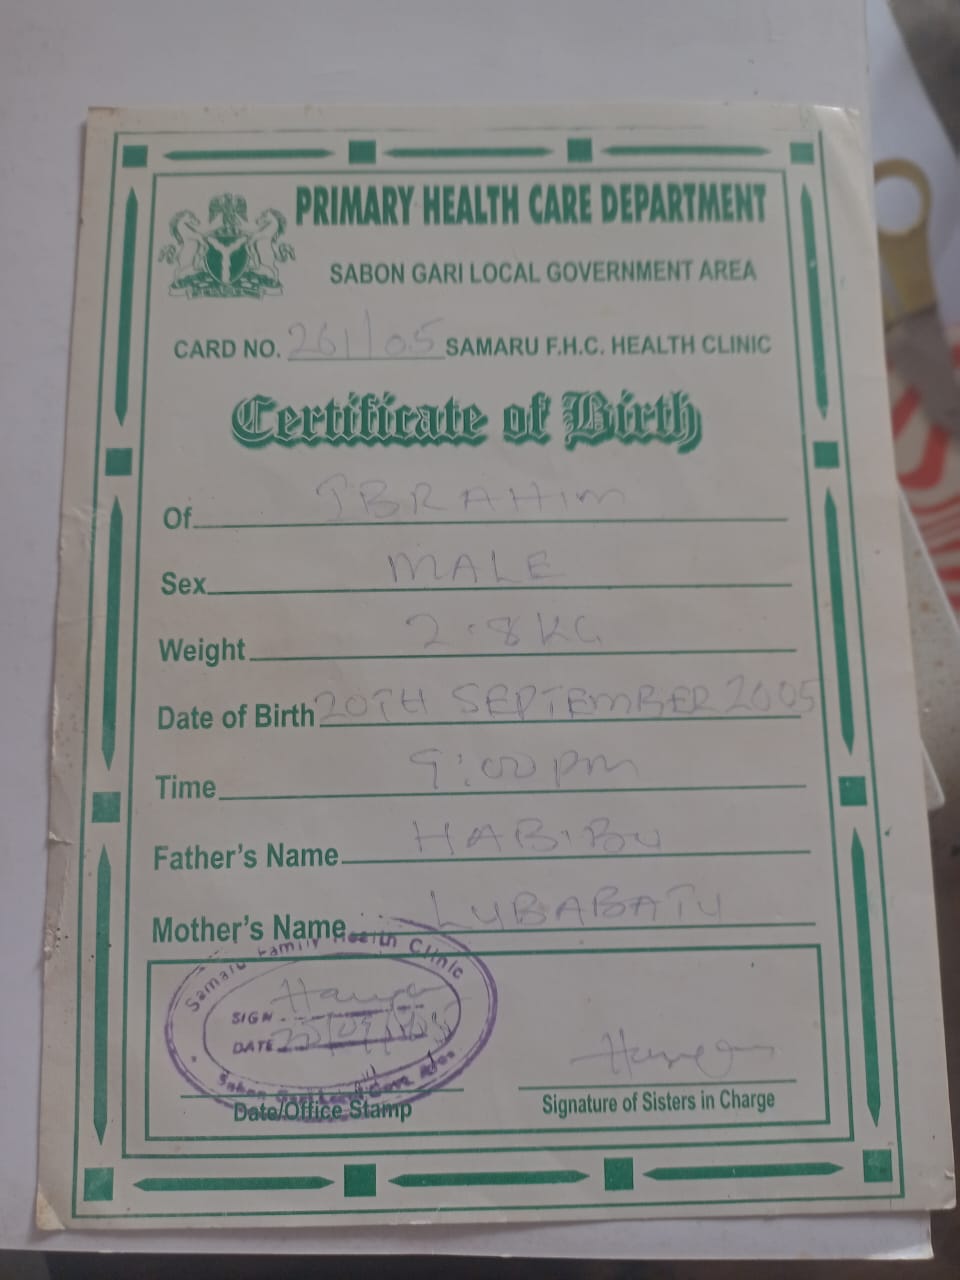 PRIMARY HEALTH CARE DEPARTMENT
SABON GARI LOCAL GOVERNMENT AREA
CARD NO. 261/05 SAMARU F.H.C. HEALTH CLINIC
Certificate of Birth
Of IBRAHIM
Sex MALE
Weight 2.8KG
Date of Birth 20TH SEPTEMBER 2005
Time 9:00pm
Father's Name HABIBU
Mother's Name LUBABATU
Samaru Family Health Clinic
SIGN
DATE
Sabon Gari Local Govt
Date/Office Stamp
Signature of Sisters in Charge